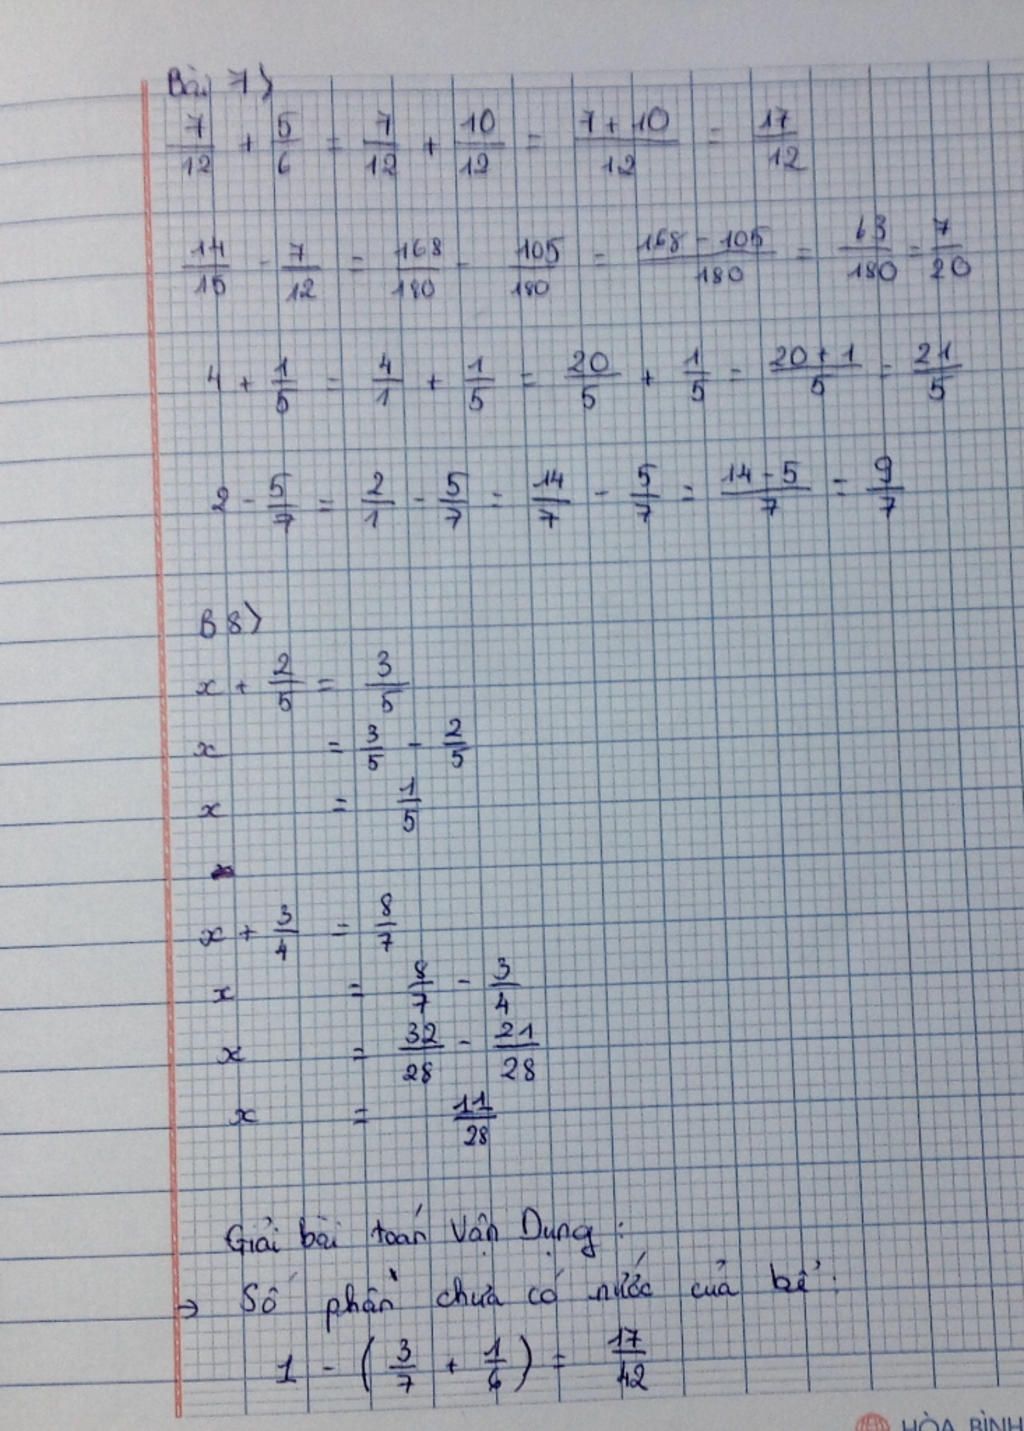 Bài 7)
7/12 + 5/6 = 7/12 + 10/12 = 7+10/12 = 17/12
14/15 - 7/12 = 168/180 - 105/180 = 168-105/180 = 63/180 = 7/20
4 + 1/5 = 4/1 + 1/5 = 20/5 + 1/5 = 20+1/5 = 21/5
2 - 5/7 = 2/1 - 5/7 = 14/7 - 5/7 = 14-5/7 = 9/7
B 8)
x + 2/5 = 3/5
x = 3/5 - 2/5
x = 1/5
x + 3/4 = 8/7
x = 8/7 - 3/4
x = 32/28 - 21/28
x = 11/28
Giải bài toán Vận Dụng :
→ Số phần chưa có nước của bể :
1 - (3/7 + 1/6) = 17/42
HÒA BÌNH